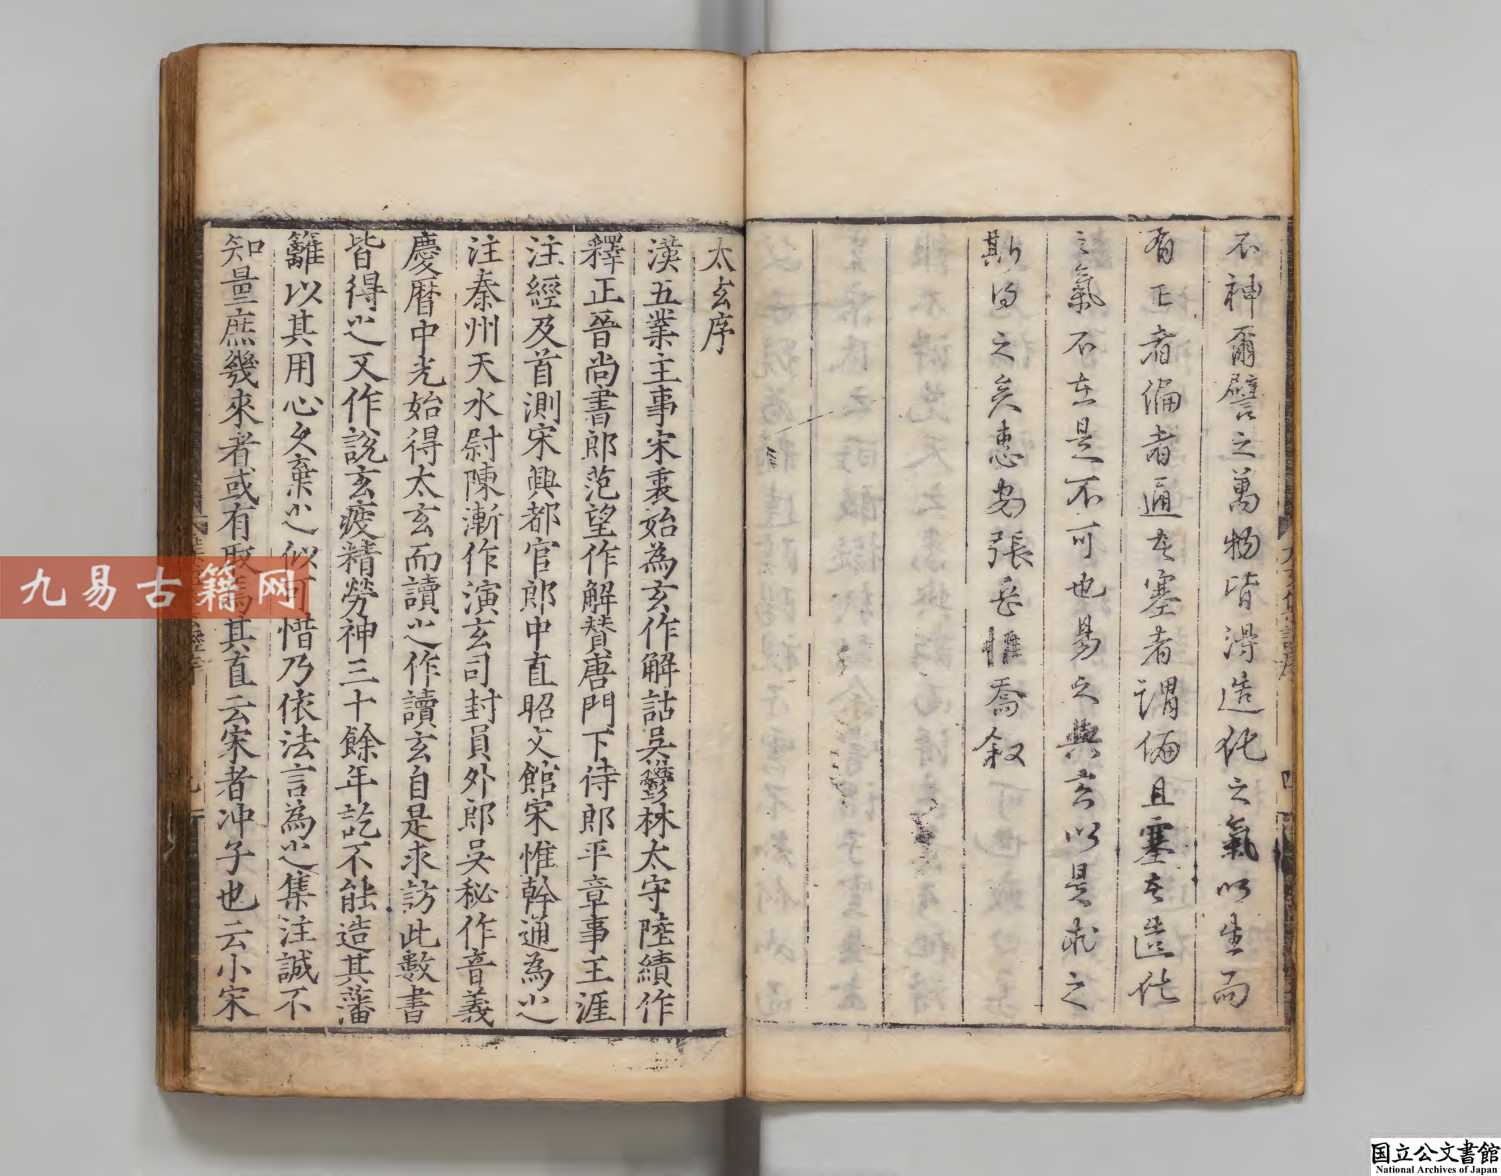 不神爾譬之萬物皆得造化之氣以生而
有正者偏者通者塞者謂偏且塞者造化
之氣不在是不可也易之與玄以是求之
斯得之矣惠安張岳惟喬叙
太玄序
漢五業主事宋衷始為玄作解詁吳鬱林太守陸績作
釋正晉尚書郎范望作解贊唐門下侍郎平章事王涯
注經及首測宋興都官郎中直昭文館宋惟幹通為之
注秦州天水尉陳漸作演玄司封員外郎吳秘作音義
慶曆中光始得太玄而讀之作讀玄自是求訪此數書
皆得之又作說玄疲精勞神三十餘年訖不能造其藩
籬以其用心久棄之似可惜乃依法言為之集注誠不
知量庶幾來者或有取焉其直云宋者冲子也云小宋
九易古籍网
国立公文書館
National Archives of Japan